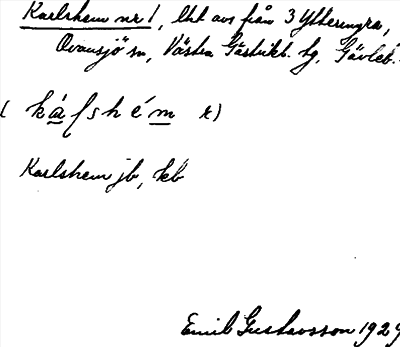 Karlshem nr 1, lht avs från 3 Ytteringra,
Ovansjö sn, Västra Gästrikl. tg. Gävleb.
Karlshem jb, kb
Emil Gustavsson 1929